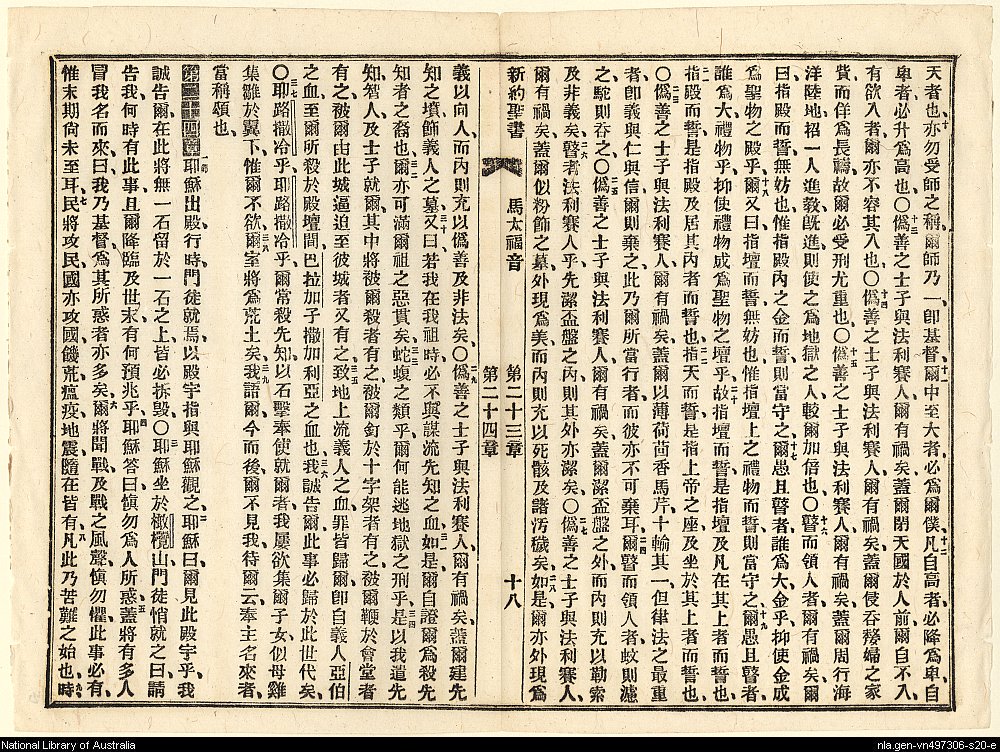 天者也、亦勿受師之稱、爾師乃一、卽基督、爾中至大者、必爲爾僕、凡自高者、必降爲卑、自
卑者、必升爲高也、〇僞善之士子與法利賽人、爾有禍矣、蓋爾閉天國於人前、爾自不入、
有欲入者、爾亦不容其入也、〇僞善之士子與法利賽人、爾有禍矣、蓋爾侵吞嫠婦之家
貲、而佯爲長禱、故爾必受刑尤重也、〇僞善之士子與法利賽人、爾有禍矣、蓋爾周行海
洋陸地、招一人進敎、旣進、則使之爲地獄之人、較爾加倍也、〇瞽而領人者、爾有禍矣、爾
曰、指殿而誓無妨也、惟指殿內之金而誓、則當守之、爾愚且瞽者、誰爲大、金乎、抑使金成
爲聖物之殿乎、爾又曰、指壇而誓無妨也、惟指壇上之禮物而誓、則當守之、爾愚且瞽者、
誰爲大、禮物乎、抑使禮物成爲聖物之壇乎、故指壇而誓、是指壇及凡在其上者而誓也、
指殿而誓、是指殿及居其內者而誓也、指天而誓、是指上帝之座、及坐於其上者而誓也、
〇僞善之士子與法利賽人、爾有禍矣、蓋爾以薄荷茴香馬芹、十輸其一、但律法之最重
者、卽義與仁與信、爾則棄之、此乃爾所當行者、而彼亦不可棄耳、爾瞽而領人者、蚊則濾
之、駝則吞之、〇僞善之士子與法利賽人、爾有禍矣、蓋爾潔盃盤之外、而內則充以勒索
及非義矣、瞽者法利賽人乎、先潔盃盤之內、則其外亦潔矣、〇僞善之士子與法利賽人、
爾有禍矣、蓋爾似粉飾之墓、外現爲美、而內則充以死骸及諸汚穢矣、如是爾亦外現爲
新約聖書 馬太福音 第二十三章 十八
第二十四章
義以向人、而內則充以僞善及非法矣、〇僞善之士子與法利賽人、爾有禍矣、蓋爾建先
知之墳、飾義人之墓、又曰、若我在我祖時、必不與謀流先知之血、如是、爾自證爾爲殺先
知者之裔也、爾亦可滿爾祖之惡貫矣、蛇蝮之類乎、爾何能逃地獄之刑乎、是以我遣先
知、智人、及士子就爾、其中將被爾殺者有之、被爾釘於十字架者有之、被爾鞭於會堂者
有之、被爾由此城逼迫至彼城者又有之、致地上流義人之血、罪皆歸爾、卽自義人亞伯
之血、至爾所殺於殿壇間、巴拉加子撒加利亞之血也、我誠告爾、此事必歸於此世代矣、
〇耶路撒冷乎、耶路撒冷乎、爾常殺先知、以石擊奉使就爾者、我屢欲集爾子女、似母雞
集雛於翼下、惟爾不欲、爾室將爲荒土矣、我語爾、今而後爾不見我、待爾云、奉主名來者、
當稱頌也、
第二十四章 耶穌出殿行時、門徒就焉、以殿宇指與耶穌觀之、耶穌曰、爾見此殿宇乎、我
誠告爾、在此將無一石留於一石之上、皆必拆毀、〇耶穌坐於橄欖山、門徒悄就之曰、請
告我、何時有此事、且爾降臨及世末、有何預兆乎、耶穌答曰、愼勿爲人所惑、蓋將有多人
冒我名而來、曰、我乃基督、爲其所惑者亦多矣、爾將聞戰、及戰之風聲、愼勿懼、此事必有、
惟末期尙未至耳、民將攻民、國亦攻國、饑荒瘟疫地震、隨在皆有、凡此乃苦難之始也、時
National Library of Australia
nla.gen-vn497306-s20-e